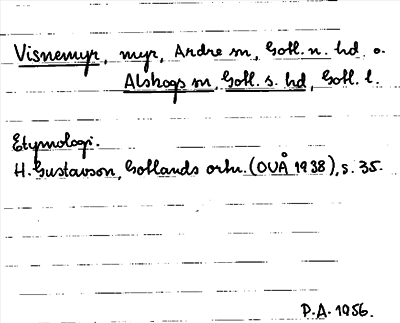 Visnemyr, myr, Ardre sn, Gotl. n. hd o.
Alskogs sn, Gotl. s. hd, Gotl. l.
Etymologi.
H. Gustavson, Gotlands ortn. (OUÅ 1938), s. 35.
P.A. 1956.